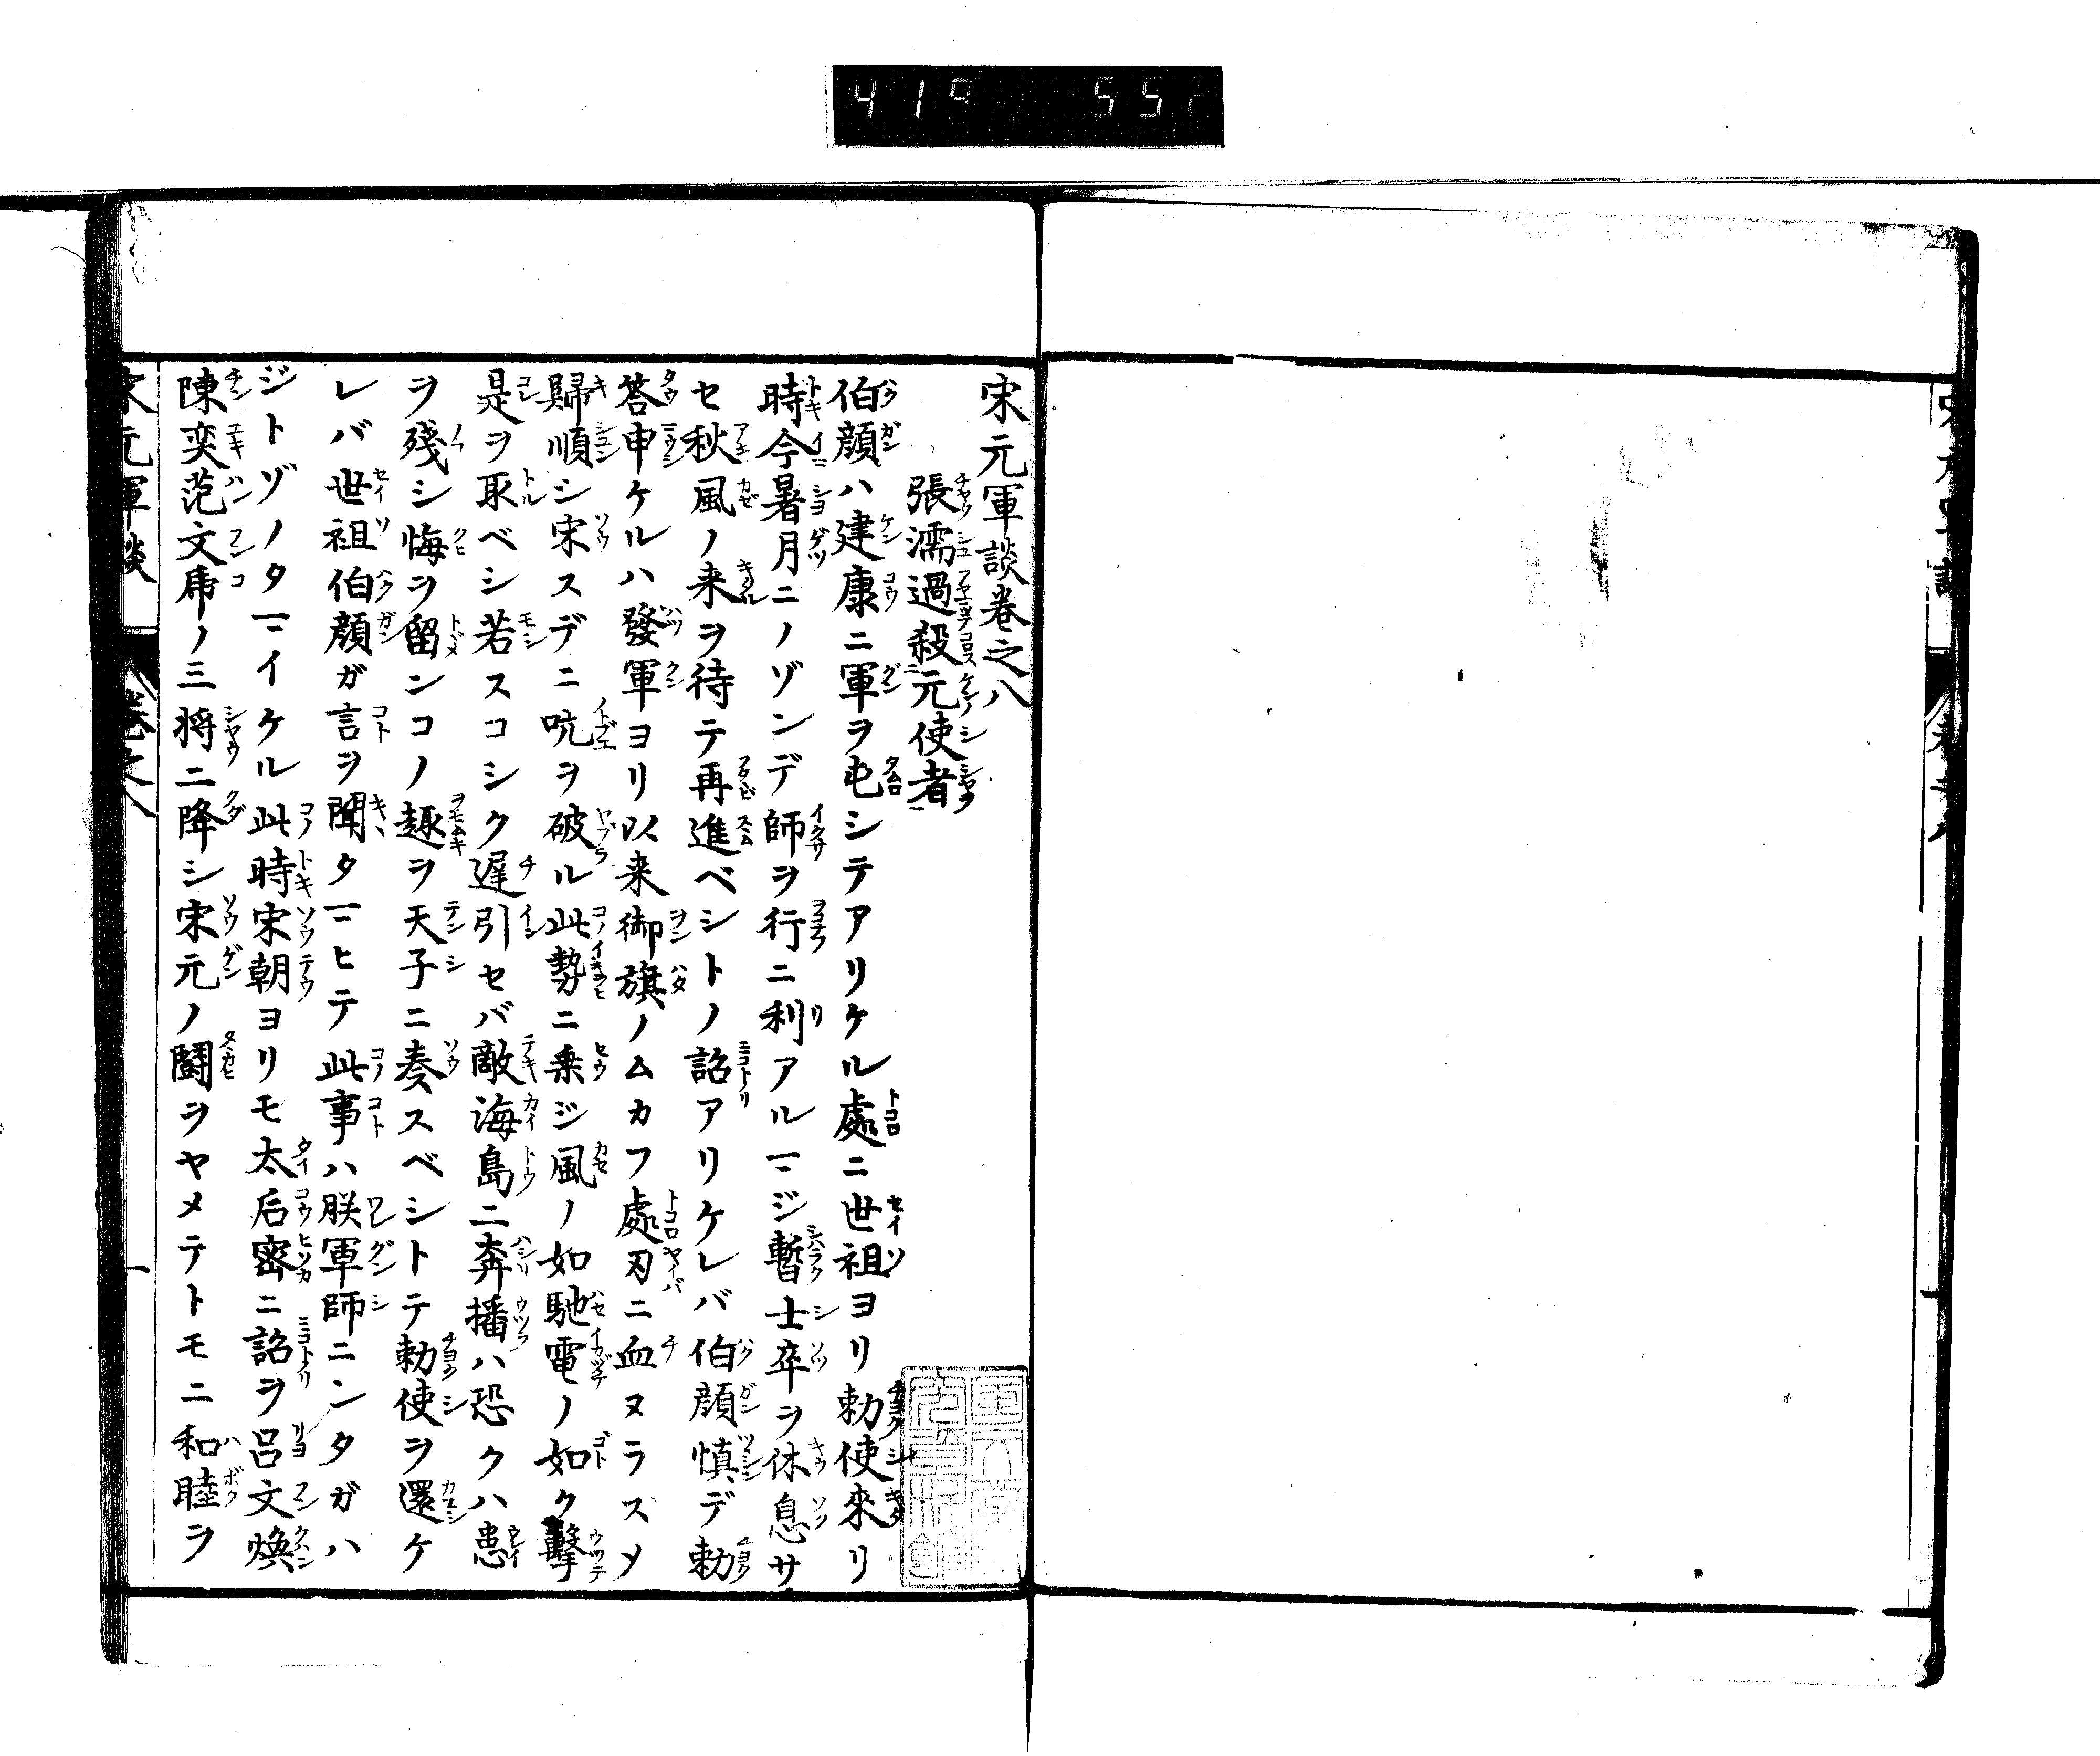 419 551
宋元軍談卷之八
張濡過殺元使者
伯顔ハ建康ニ軍ヲ屯シテアリケル處ニ世祖ヨリ勅使來リ
時今暑月ニノゾンデ師ヲ行ニ利アルヿニジ暫士卒ヲ休息サ
セ秋風ノ来ヲ待テ再進ベシトノ詔アリケレバ伯顔慎デ勅
答申ケルハ發軍ヨリ以来御旗ノムカフ處刃ニ血ヌラズメ
歸順シ宋スデニ吭ヲ破ル此勢ニ乗ジ風ノ如馳電ノ如ク擊
是ヲ取ベシ若スコシク遲引セバ敵海島ニ奔播ハ恐クハ患
ヲ殘シ悔ヲ留ンコノ趣ヲ天子ニ奏スベシトテ勅使ヲ還ケ
レバ世祖伯顔ガ言ヲ聞タマヒテ此事ハ朕軍師ニンタガハ
ジトゾノタマイケル此時宋朝ヨリモ太后密ニ詔ヲ呂文煥
陳奕范文乕ノ三將ニ降シ宋元ノ鬪ヲヤメテトモニ和睦ヲ
宋元軍談 卷之八 一